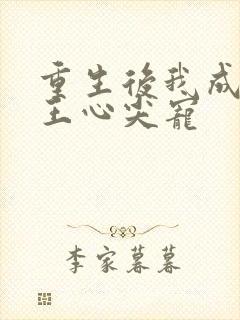 重生後我成
王心尖寵
李家暮暮